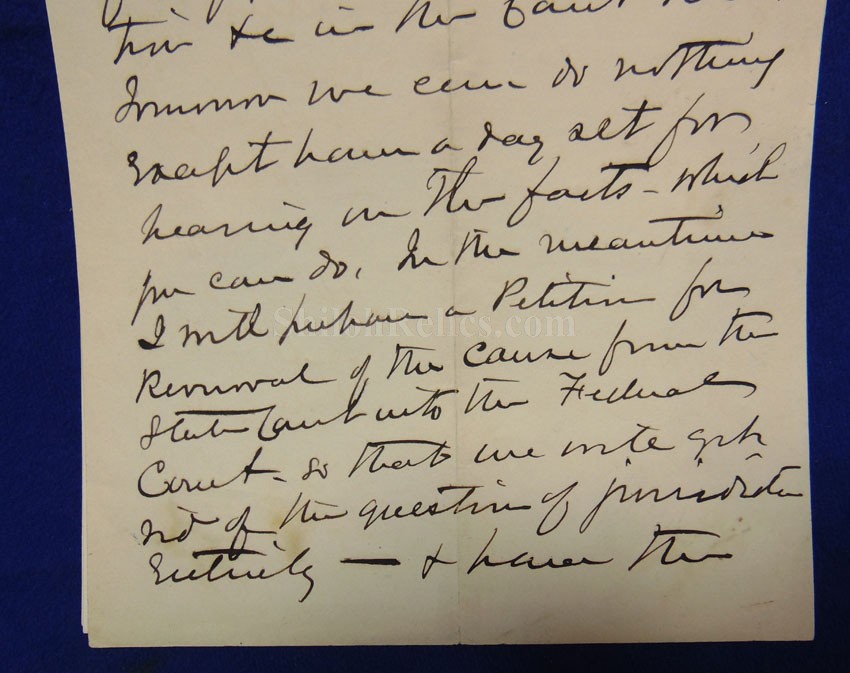 tion &c in the Court
Tomorrow we can do nothing
Except have a day set for
hearing on the facts - which
you can do. In the meantime
I will prepare a Petition for
Removal of the cause from the
State Court into the Federal
Court - so that we will get
rid of the question of jurisdiction
Entirely — & have the
ShilohRelics.com